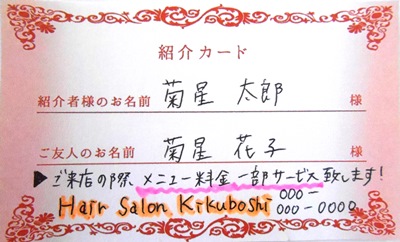 紹介カード
紹介者様のお名前 菊星 太郎 様
ご友人のお名前 菊星 花子 様
▶ご来店の際 メニュー料金一部サービス致します!
Hair Salon Kikuboshi 000-000-0000